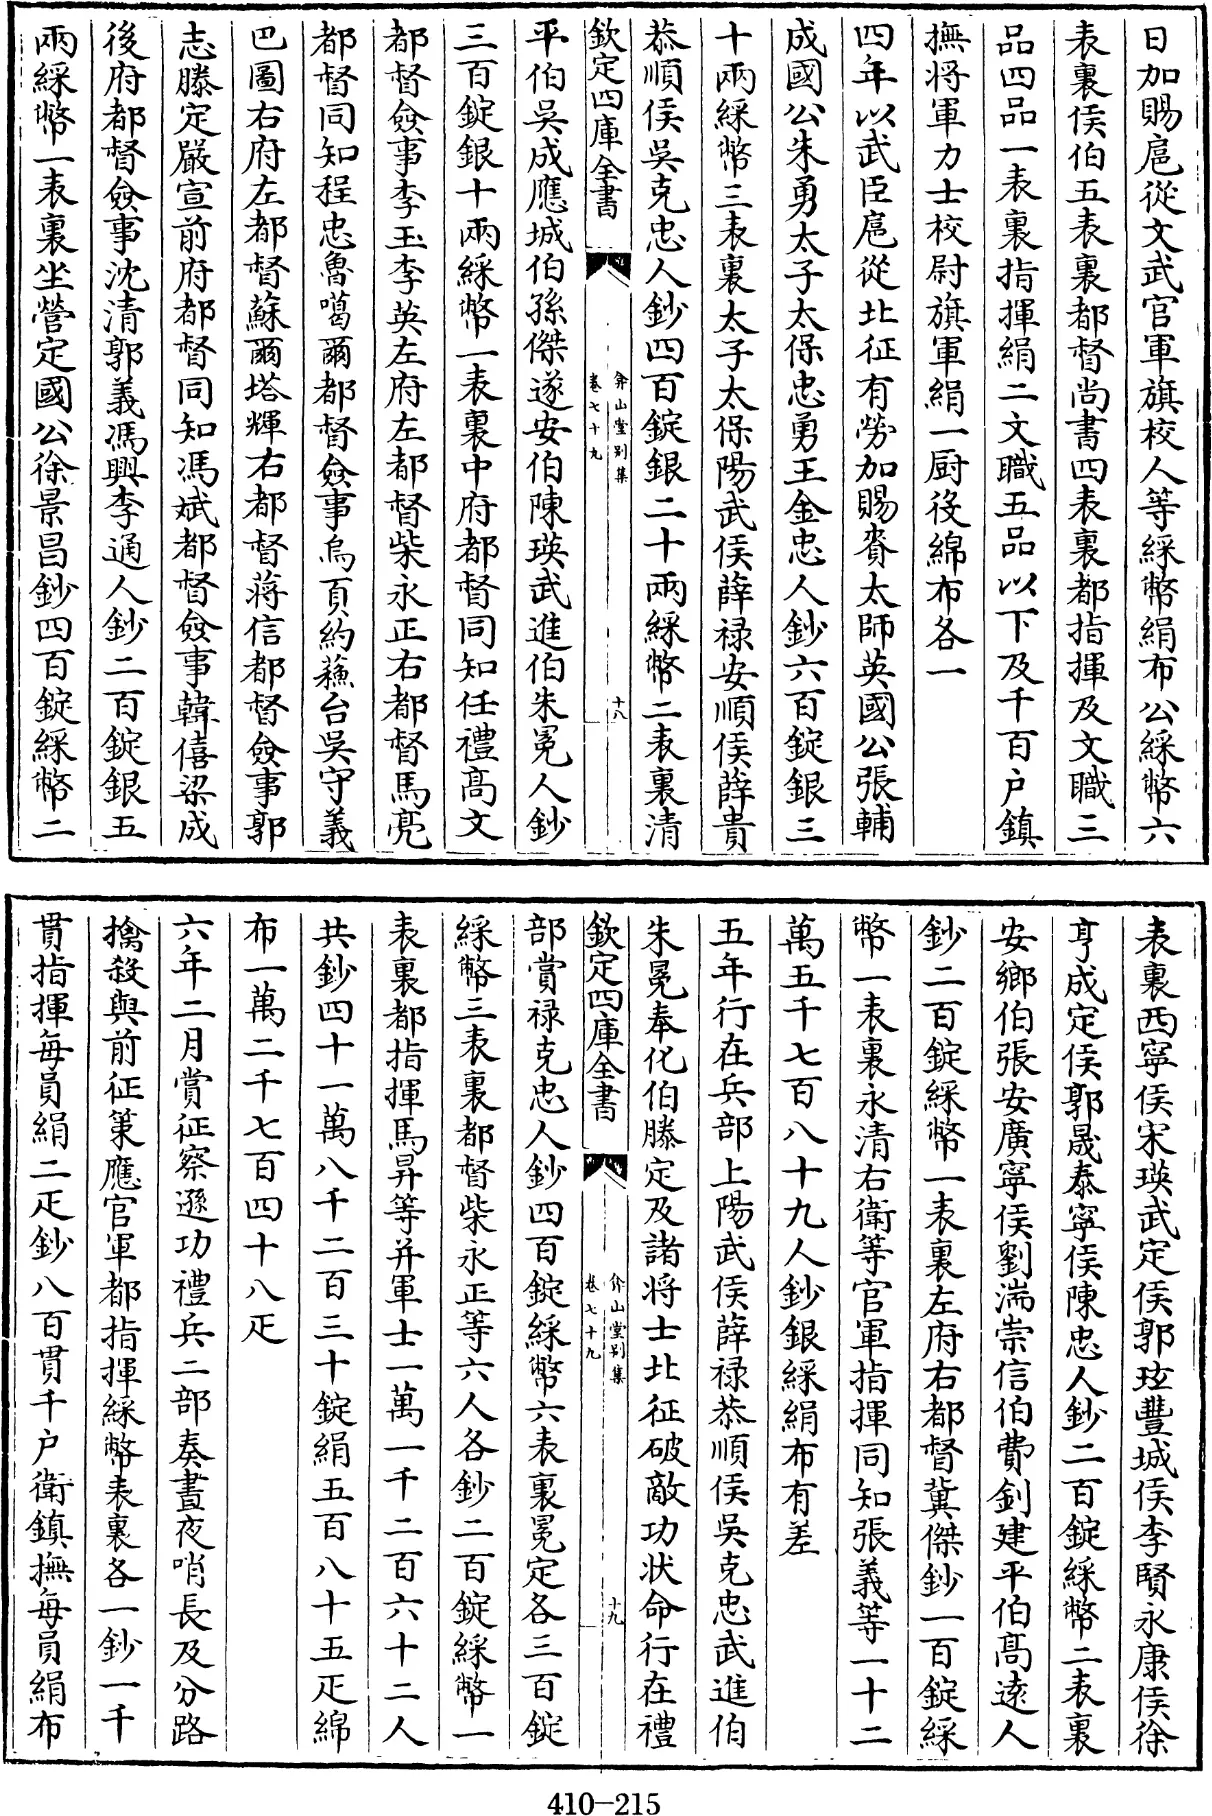 日加賜扈從文武官軍旗校人等綵幣絹布公綵幣六
表裏侯伯五表裏都督尚書四表裏都指揮及文職三
品四品一表裏指揮絹二文職五品以下及千百户鎮
撫将軍力士校尉旗軍絹一厨役綿布各一
四年以武臣扈從北征有勞加賜賚太師英國公張輔
成國公朱勇太子太保忠勇王金忠人鈔六百錠銀三
十兩綵幣三表裏太子太保陽武侯薛禄安順侯薛貴
恭順侯吳克忠人鈔四百錠銀二十兩綵幣二表裏清
欽定四庫全書
弇山堂别集
卷七十九
十八
平伯吳成應城伯孫傑遂安伯陳瑛武進伯朱冕人鈔
三百錠銀十兩綵幣一表裏中府都督同知任禮髙文
都督僉事李玉李英左府左都督柴永正右都督馬亮
都督同知程忠魯噶爾都督僉事烏頁約蘓台吳守義
巴圖右府左都督蘇爾塔輝右都督蔣信都督僉事郭
志滕定嚴宣前府都督同知馮斌都督僉事韓僖梁成
後府都督僉事沈清郭義馮興李通人鈔二百錠銀五
兩綵幣一表裏坐營定國公徐景昌鈔四百錠綵幣二
表裏西寧侯宋瑛武定侯郭玹豐城侯李賢永康侯徐
亨成定侯郭晟泰寧侯陳忠人鈔二百錠綵幣二表裏
安鄉伯張安廣寧侯劉湍崇信伯費釗建平伯髙逺人
鈔二百錠綵幣一表裏左府右都督冀傑鈔一百錠綵
幣一表裏永清右衛等官軍指揮同知張義等一十二
萬五千七百八十九人鈔銀綵絹布有差
五年行在兵部上陽武侯薛禄恭順侯吳克忠武進伯
朱冕奉化伯滕定及諸将士北征破敵功状命行在禮
欽定四庫全書
弇山堂别集
卷七十九
十九
部賞禄克忠人鈔四百錠綵幣六表裏冕定各三百錠
綵幣三表裏都督柴永正等六人各鈔二百錠綵幣一
表裏都指揮馬昇等并軍士一萬一千二百六十二人
共鈔四十一萬八千二百三十錠絹五百八十五疋綿
布一萬二千七百四十八疋
六年二月賞征察遜功禮兵二部奏晝夜哨長及分路
擒殺與前征策應官軍都指揮綵幣表裏各一鈔一千
貫指揮每員絹二疋鈔八百貫千户衛鎮撫每員絹布
410-215